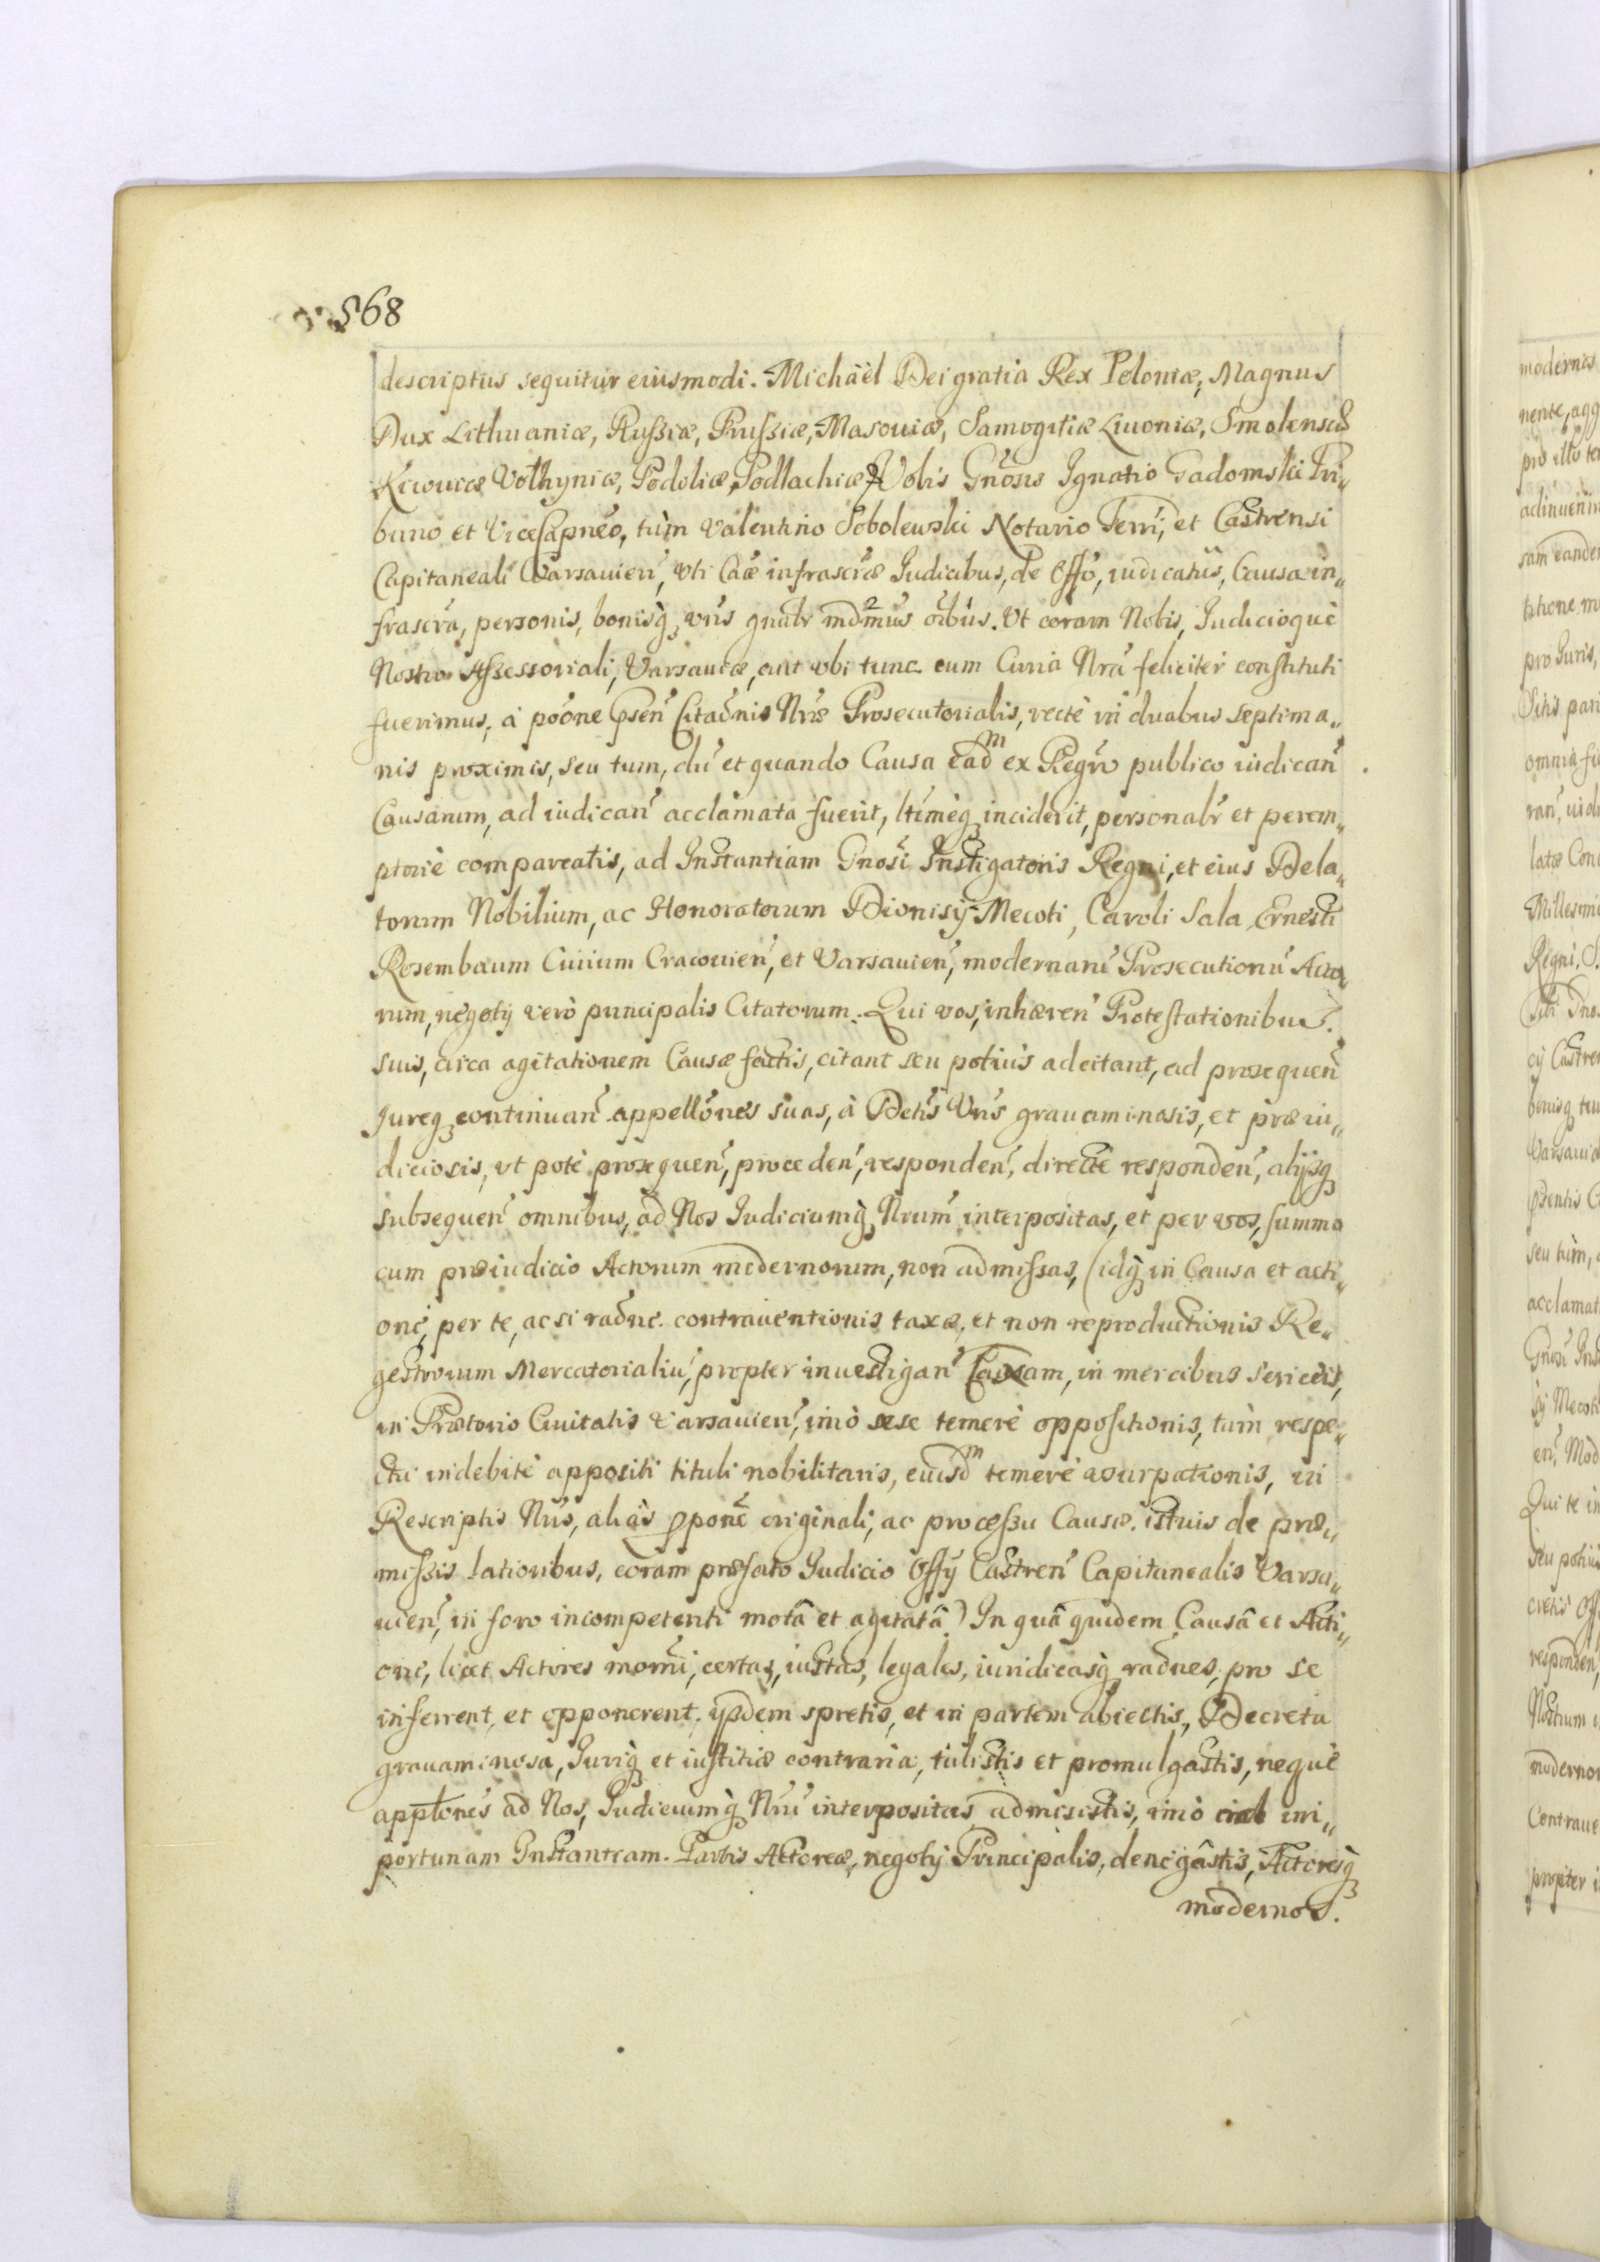 568
descriptus sequitur eiusmodi. Michäel Dei gratia Rex Poloniæ, Magnus
Dux Lithuaniæ, Russiæ, Prussiæ, Masouiæ, Samogitiæ Liuoniæ, Smolensciæ
Kiiouiæ Volhyniæ, Podoliæ, Podlachiæ Vobis Gnosis Ignatio Gadomski Tri„
buno et ViceCapneo, tùm Valentino Sobolewski Notario Terri, et Castrensi
Capitaneali Varsauien, vti Cae infrascræ Judicibus, de Offo, iudicatis, Causa in„
frascra, personis, bonisq, vris gnalr mdmus oibus. Vt coram Nobis, Judicioque
Nostro Assessoriali, Varsauiæ, aut vbi tunc cum Curia Nra feliciter constituti
fuerimus, à pòone Psen Citaonis Nræ Prosecutorialis, rectè in duabus septima„
nis proximis, seu tum, du et quando Causa eadm ex Regro publico iudican
Causarum, ad iudican acclamata fuerit, ltimèq inciderit, personalr et perem„
ptoriè compareatis, ad Instantiam Gnosi Instigatoris Regni, et eius Dela„
torum Nobilium, ac Honoratorum Dionisij Mecoti, Caroli Sala, Ernesti
Rosembaum Ciuium Cracouien, et Varsauien, modernaru Prosecutionu Acto„
rum, negotij verò principalis Citatorum. Qui vos, inhæren Protestationibus
suis, circa agitationem Causæ factis, citant seu potius adcitant, ad prosequen
Jureq continuan appellones suas, à Detis Vris grauaminosis, et præiu„
diciosis, vt potè prosequen, proceden, responden, directè responden, alijsq
subsequen omnibus, ad Nos Judiciumq Nrum interpositas, et per vos, summo
cum præiudicio Actorum modernorum, non admissas, (idq in Causa et acti„
one, per te, ac si raone contrauentionis taxæ, et non reproductionis Re„
gestrorum Mercatorialiu, propter inuestigan Taxam, in mercibus sericeis,
in Prætorio Ciuitatis Varsauien, imò sese temerè oppositionis, tùm respe„
ctu indebitè appositi tituli nobilitaris, eiusdm temerè vsurpationis, in
Rescriptis Nris, aliàs Pponē originali, ac processu Causæ istius de præ„
missis lationibus, coram præfato Judicio Offij Castren Capitanealis Varsa„
uien, in foro incompetenti motâ et agitatâ) In quâ quidem Causâ et Acti„
one, licet Actores momi, certas, iustas, legales, iuridicasq raones, pro se
inferrent, et opponerent, ijsdem spretis, et in partem abiectis, Decreta
grauaminosa, Juriq et iustitiæ contraria, tulistis et promulgastis, neque
appltones ad Nos, Judiciumq Nru interpositas admisistis, imò ini„
portunam Instantiam Partis Actoreæ, negotij Principalis, denegâstis, Actoresq
modernos.
modernos
Regni
Varsauia
seu tùm,
acclamat
Qui te in
seu potius
propter i